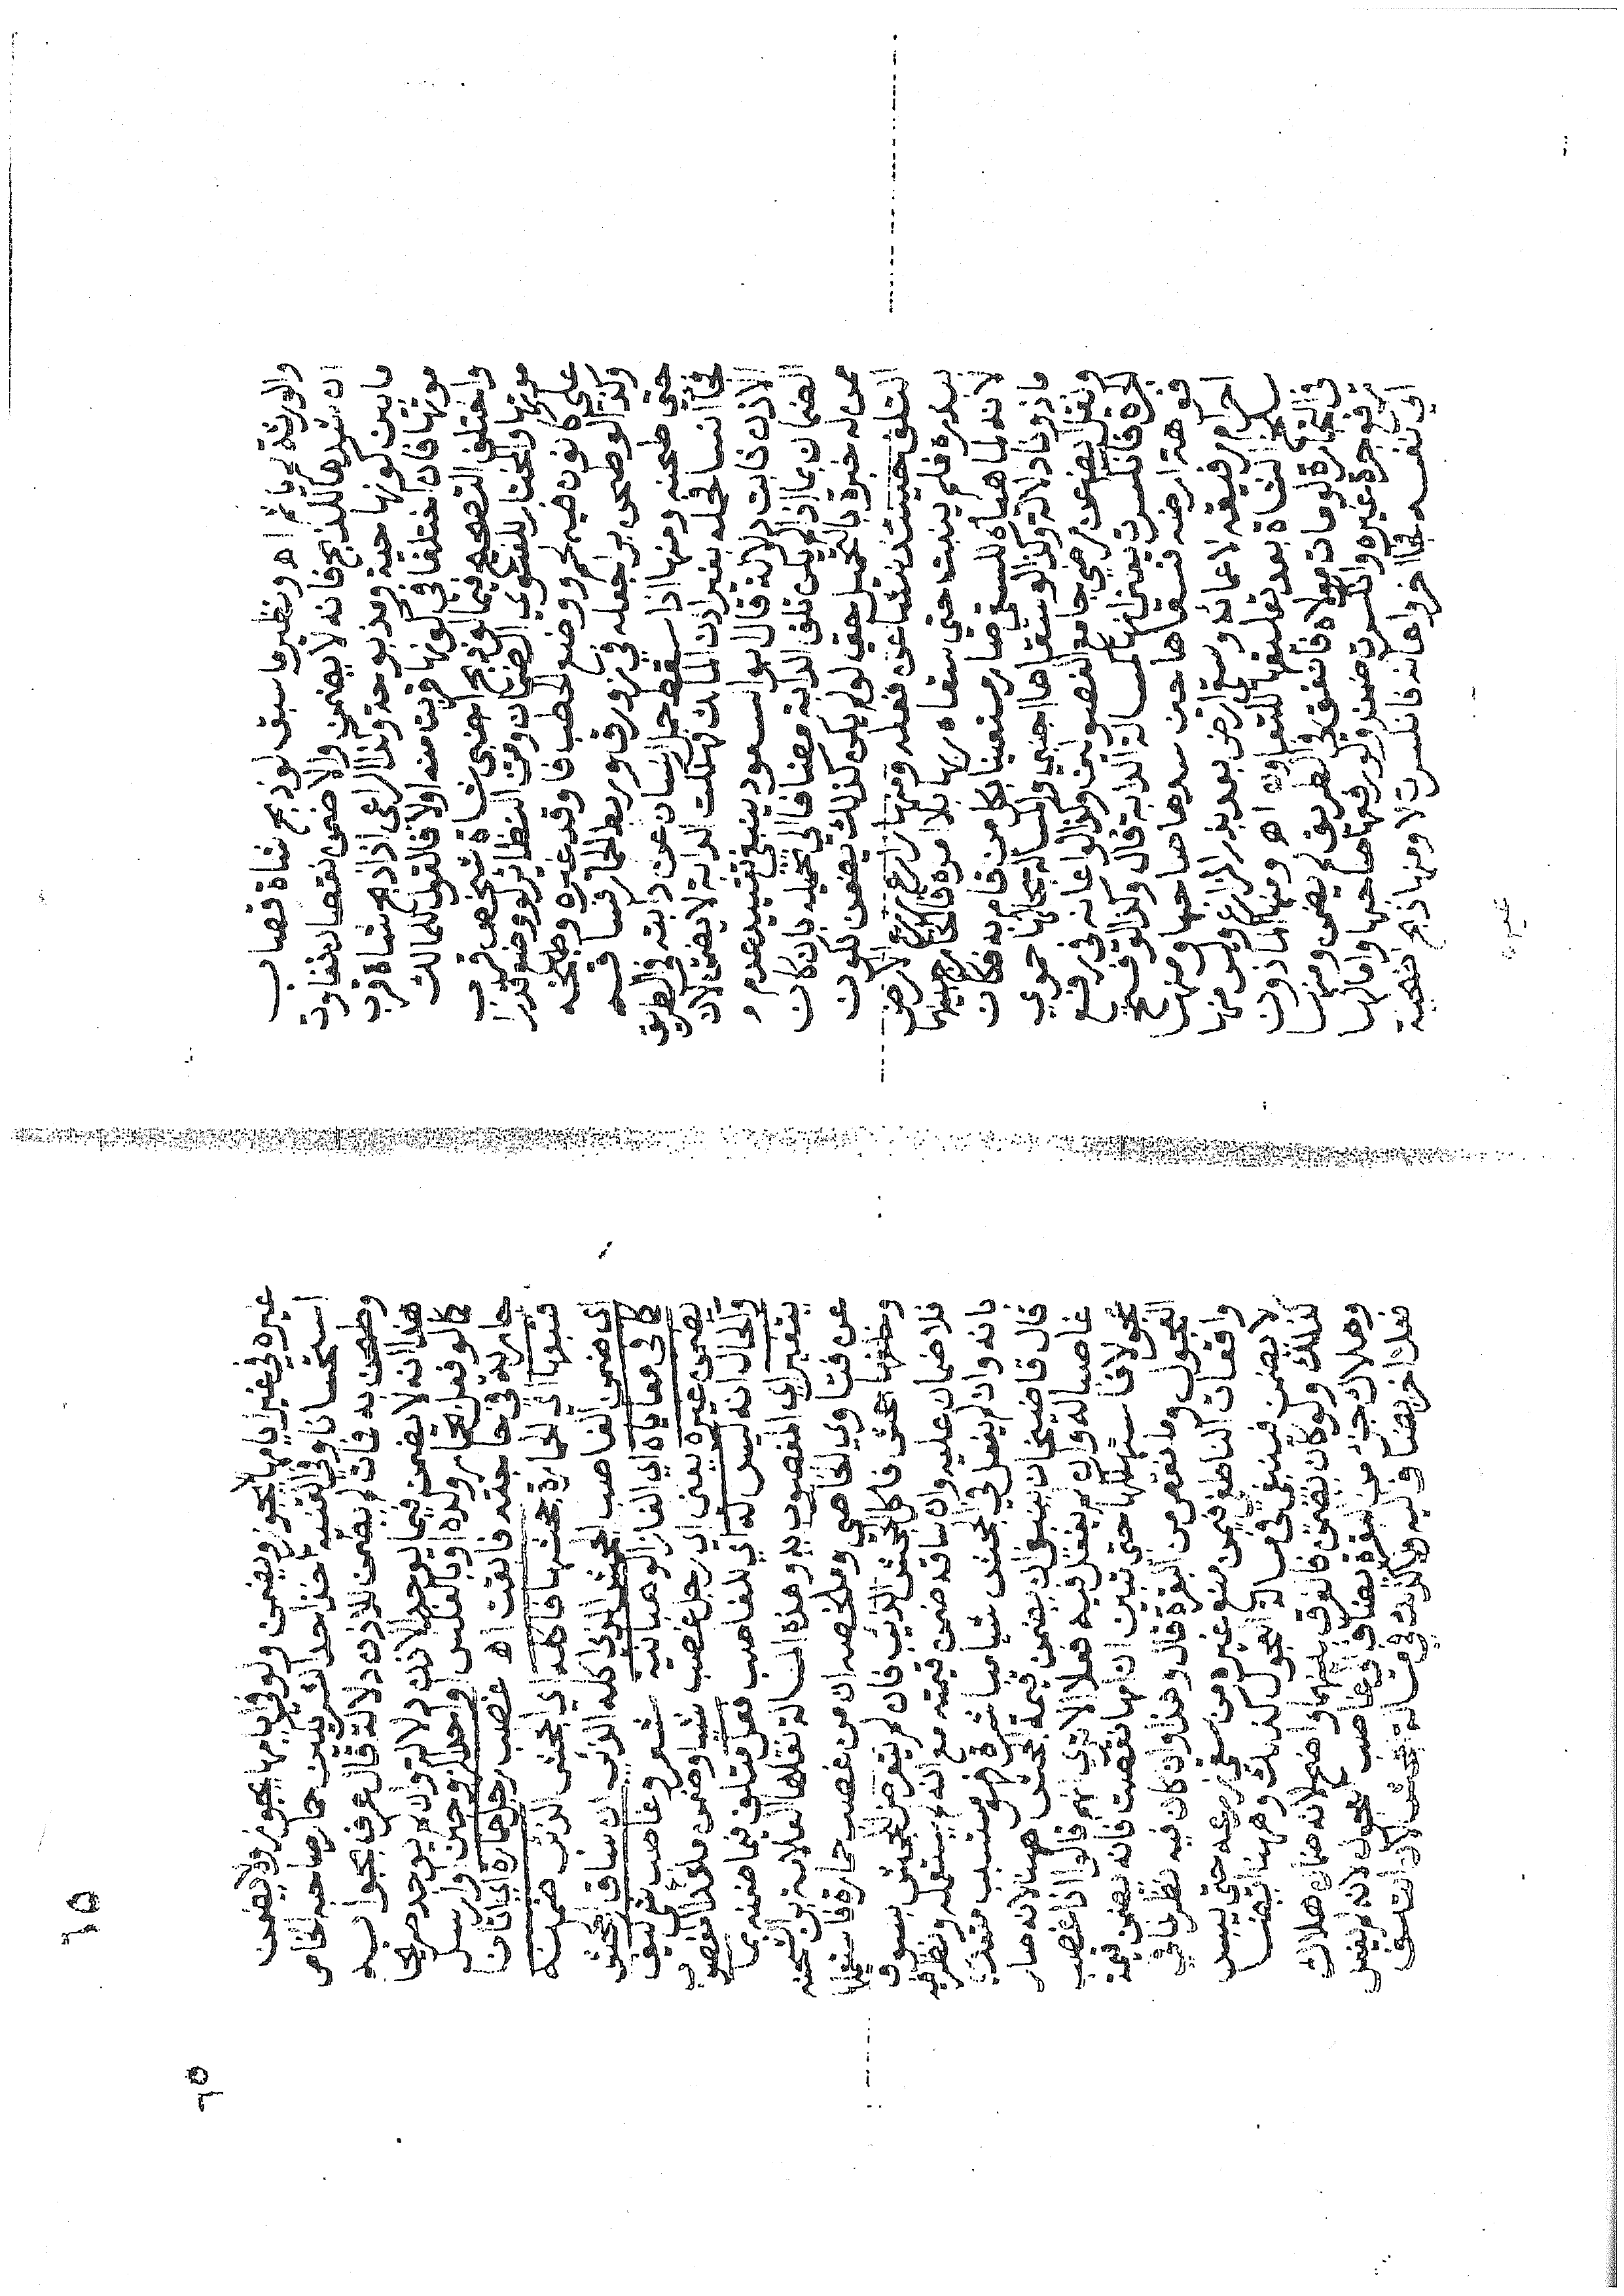 ولورثة لم ياثم اه ونظير ما سبق لو ذبح شاة قصاب
ان شدها للذبح فانه لا يضمن والا ضمن نقصان تفاوت
ما بين كونها حية ومذبوحة وكذا الراعي اذا ذبح شاة قرب
موتها فان اختلفا في كونها قربت منه اولا فالقول للمالك
واختلف التصحيح فيما لو ذبح اجنبي شاة شخص قرب
موتها والمختار للفتوي الضمان ومن النظائر لو وضع قدرا
على كانون فيه لحم ووضع الحطب فاوقد غيره وطبخه
وكذا لو طحن برا جعله في زورق وربط الحمار فساقه
حتى طحنه ومنها اذا سقط حمل انسان عن دابته في الطريق
فجا انسان فحمله بغير اذن المالك فهلكت الدابة لا يضمن لان
الاذن ثابت دلالة قال ابو السعود ينبغي تقييد عدم
الضمان بما اذا لم يكن تلف الدابة مضافا الى تحميله بان كان
ممن له خبرة بالتحميل حتى لو لم يكن كذلك يضمن لكون
التلف حينئذ ناشئا عن فعله ومنها زارع زرع الارض
ببذره فلم ينبت حتى سقاه ربها بلا امره فالخارج بينهما
لانه لما هيأه للسقي صار مستعينا بكل من قام به فكان
ماذونا دلالة وكذا لو سقاها اجنبي والمسالة بحالها حموي
ونقل ايضا عن مرضي جامع الفصولين وكذا لو اعانه في رفع
الجرة فانكسرت يعني انها كمسالة الدابة قال وكذا لو فتح
فوهة ارضه فسقاها حين سدها صاحبها ومنها
احرام رفيقه لاغمائه وسقي ارض بعد بذر الزارع ويكون منها
سلخ الشاة بعد تعليقها للتفاوت اه ومنها الماذون
في التجارة لو مات مولاه فانفق في الطريق لم يضمن ومنها
رفع جرة غيره وانكسرت ضمن ولو رفعها صاحبها وامالها
الى نفسه فجا اخر واعانه فانكسرت لا ومنها ذبح اضحية
غيره في غير ايامها لا يجوز ويضمن ولو في ايامها يجوز ولا يضمن
استحسانا وفي القنية اخذ احد الشريكين حمار صاحبه الخاص
وطحن به فمات لم يضمن للاذن دلالة قال عرف بجوابه
هذا انه لا يضمن فيما يوجد الاذن دلالة وان لم يوجد صريحا
كما لو فعل بحمار ولده او بالعكس او احد الزوجين او ارسل
جارية زوجته في حاجته فابقت اه غصب رجل حمارة اي اتان
فتبعها اي الحمارة جحشها فاكله اي الجحش الذئب ضمنه
اي ضمن الغاصب الجحش الذي اكله الذئب ان ساق الجحش
كما في معاياة اي الغاز الوهبانية شعر وغاصب شي كيف
يضمن غيره يعني اي رجل غصب شيا وضمن ملك المغصوب
والحال انه ليس له اي للغاصب فعل متلف فيما ضمنه بما
بتغير اي المغصوب به وهذه المسالة نقلها العلامة ابن الشحنة
عن فتاوي الخاصي وملخصه ان من غصب حمارة فاستعملها
وخلفها جحش فاكل الجحش الذئب فان لم يتعرض للجحش بسوق
فلا ضمان عليه وان ساقه ضمن قيمته مع انه لم يستعمله ونظر فيه
بانه وان لم يفعل في الجحش شيا مباشرة فهو متسبب متعد
قال قاضيخان ينبغي ان يضمن قيمة الجحش هنا لانه صار
غاصبا له وان لم يفعل فيه فعلا الا ترى انهم قالوا اذا غصب
عجولا فاستهلكها حتى تبين ان امها نقصت فانه يضمن قيمة
العجول وما نقص من البقرة قال وهذا وان كان فيه نظر لما في
واقعات الناطفي فيمن منع غيره من سقي زرعه حتى يبس
لا يضمن فينبغي في مسالة العجول كذلك وهنا ايضا
كذلك ولو كان يضمن فالفرق بينهما واضح لانه ضمان هلاك
وهلاك جزء من البقرة تضاف الى غاصب العجول لانه لم يفعل
فعلا اخر يضاف اليه ولا كذلك في مسالة الجحش لان التلف
٦٥
٦٥